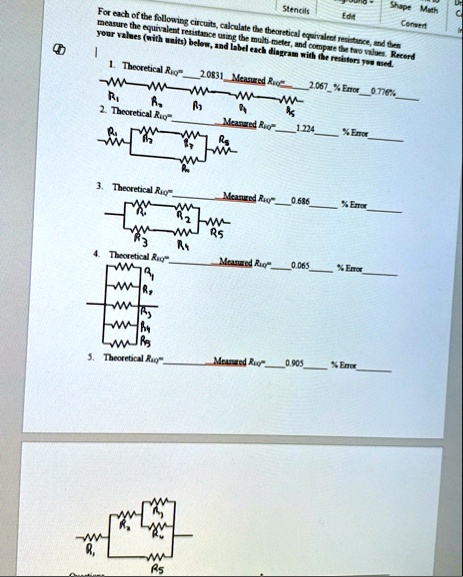 Stencils
Edit
Shape Math
Convert
For each of the following circuits, calculate the theoretical equivalent resistance, and then
measure the equivalent resistance using the multi-meter, and compare the two values. Record
your values (with units) below, and label each diagram with the resistors you used.
1. Theoretical REQ= 2.0831 Measured REQ= 2.067 % Error 0.776%
R1 R2 R3 R4 R5
2. Theoretical REQ= Measured REQ= 1.224 % Error
R1 R2 R3 R5
R4
3. Theoretical REQ= Measured REQ= 0.686 % Error
R1 R2 R5
R3 R4
4. Theoretical REQ= Measured REQ= 0.065 % Error
R1
R2
R3
R4
R5
5. Theoretical REQ= Measured REQ= 0.905 % Error
R3
R2 R4
R1
R5